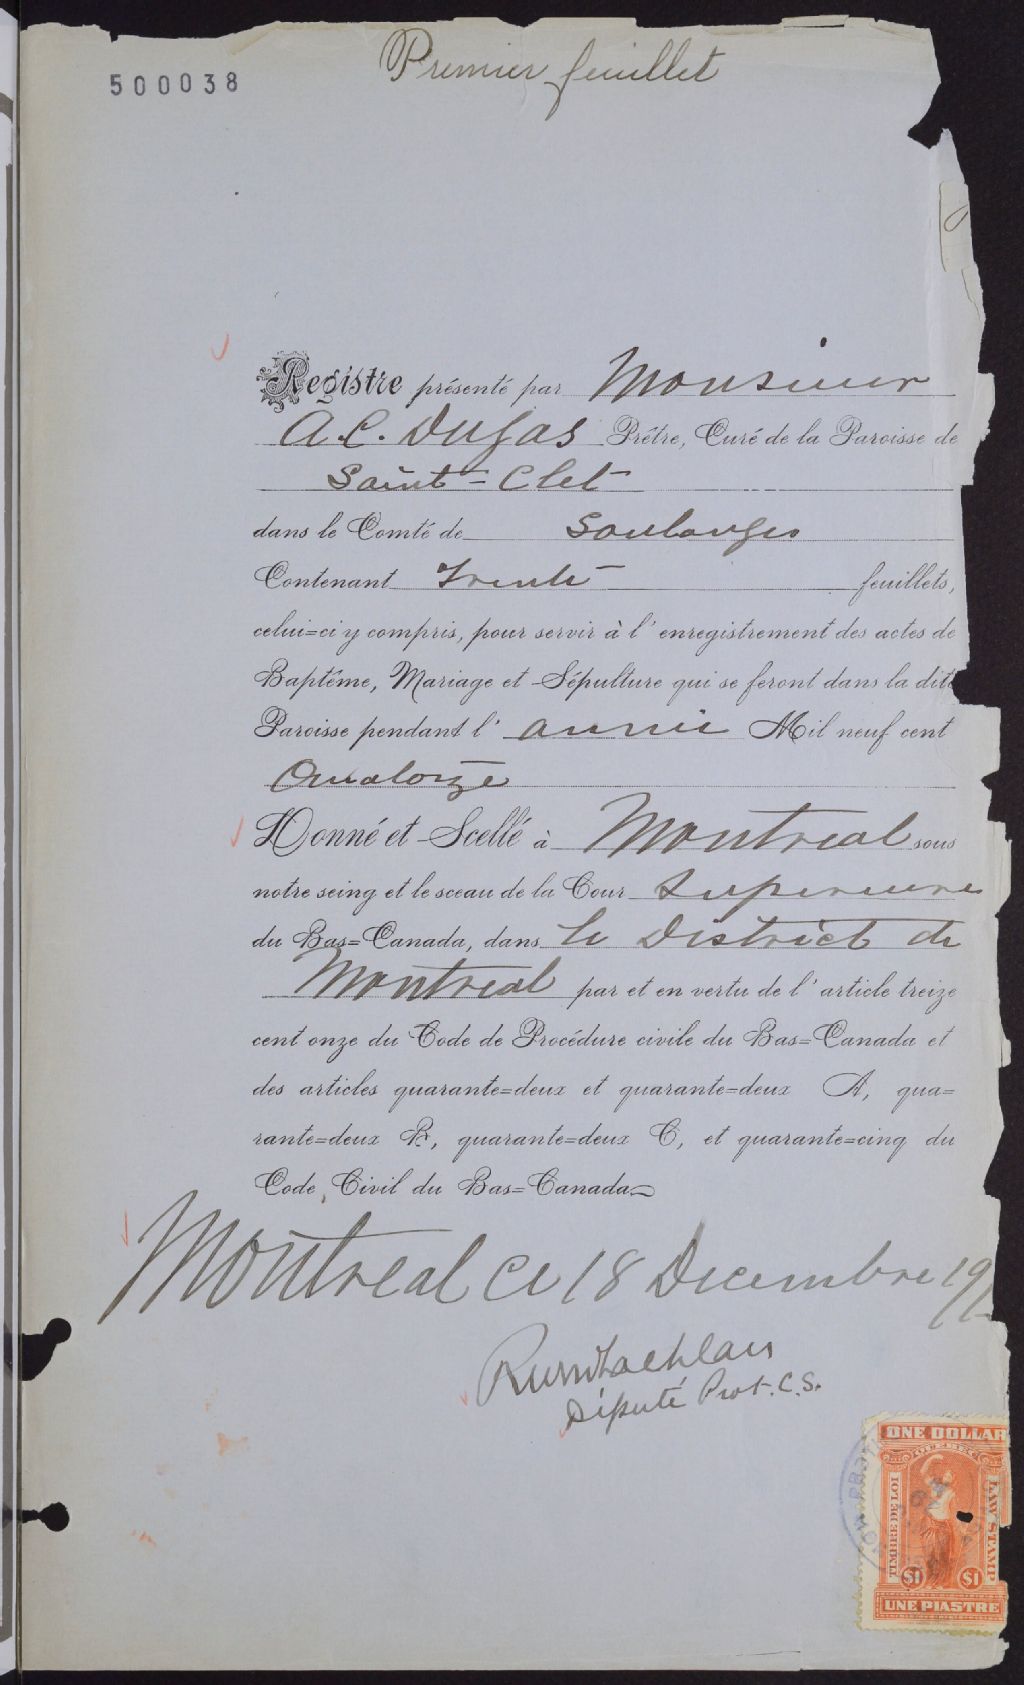 Premier feuillet
500038
Registre présenté par Monsieur
A. C. Dugas Prêtre, Curé de la Paroisse de
Saint-Clet
dans le Comté de Soulanges
Contenant Trente feuillets,
celui=ci y compris, pour servir à l'enregistrement des actes de
Baptême, Mariage et Sépulture qui se feront dans la dite
Paroisse pendant l'année Mil neuf cent
Quatorze
Donné et Scellé à Montreal sous
notre seing et le sceau de la Cour Superieure
du Bas=Canada, dans le District de
Montreal par et en vertu de l'article treize
cent onze du Code de Procédure civile du Bas=Canada et
des articles quarante=deux et quarante=deux A, qua=
rante=deux B, quarante=deux C, et quarante=cinq du
Code Civil du Bas=Canada
Montreal ce 18 Decembre 191
Député Prot. C. S.
ONE DOLLAR
QUEBEC
TIMBRE DE LOI
LAW STAMP
$1 $1
UNE PIASTRE